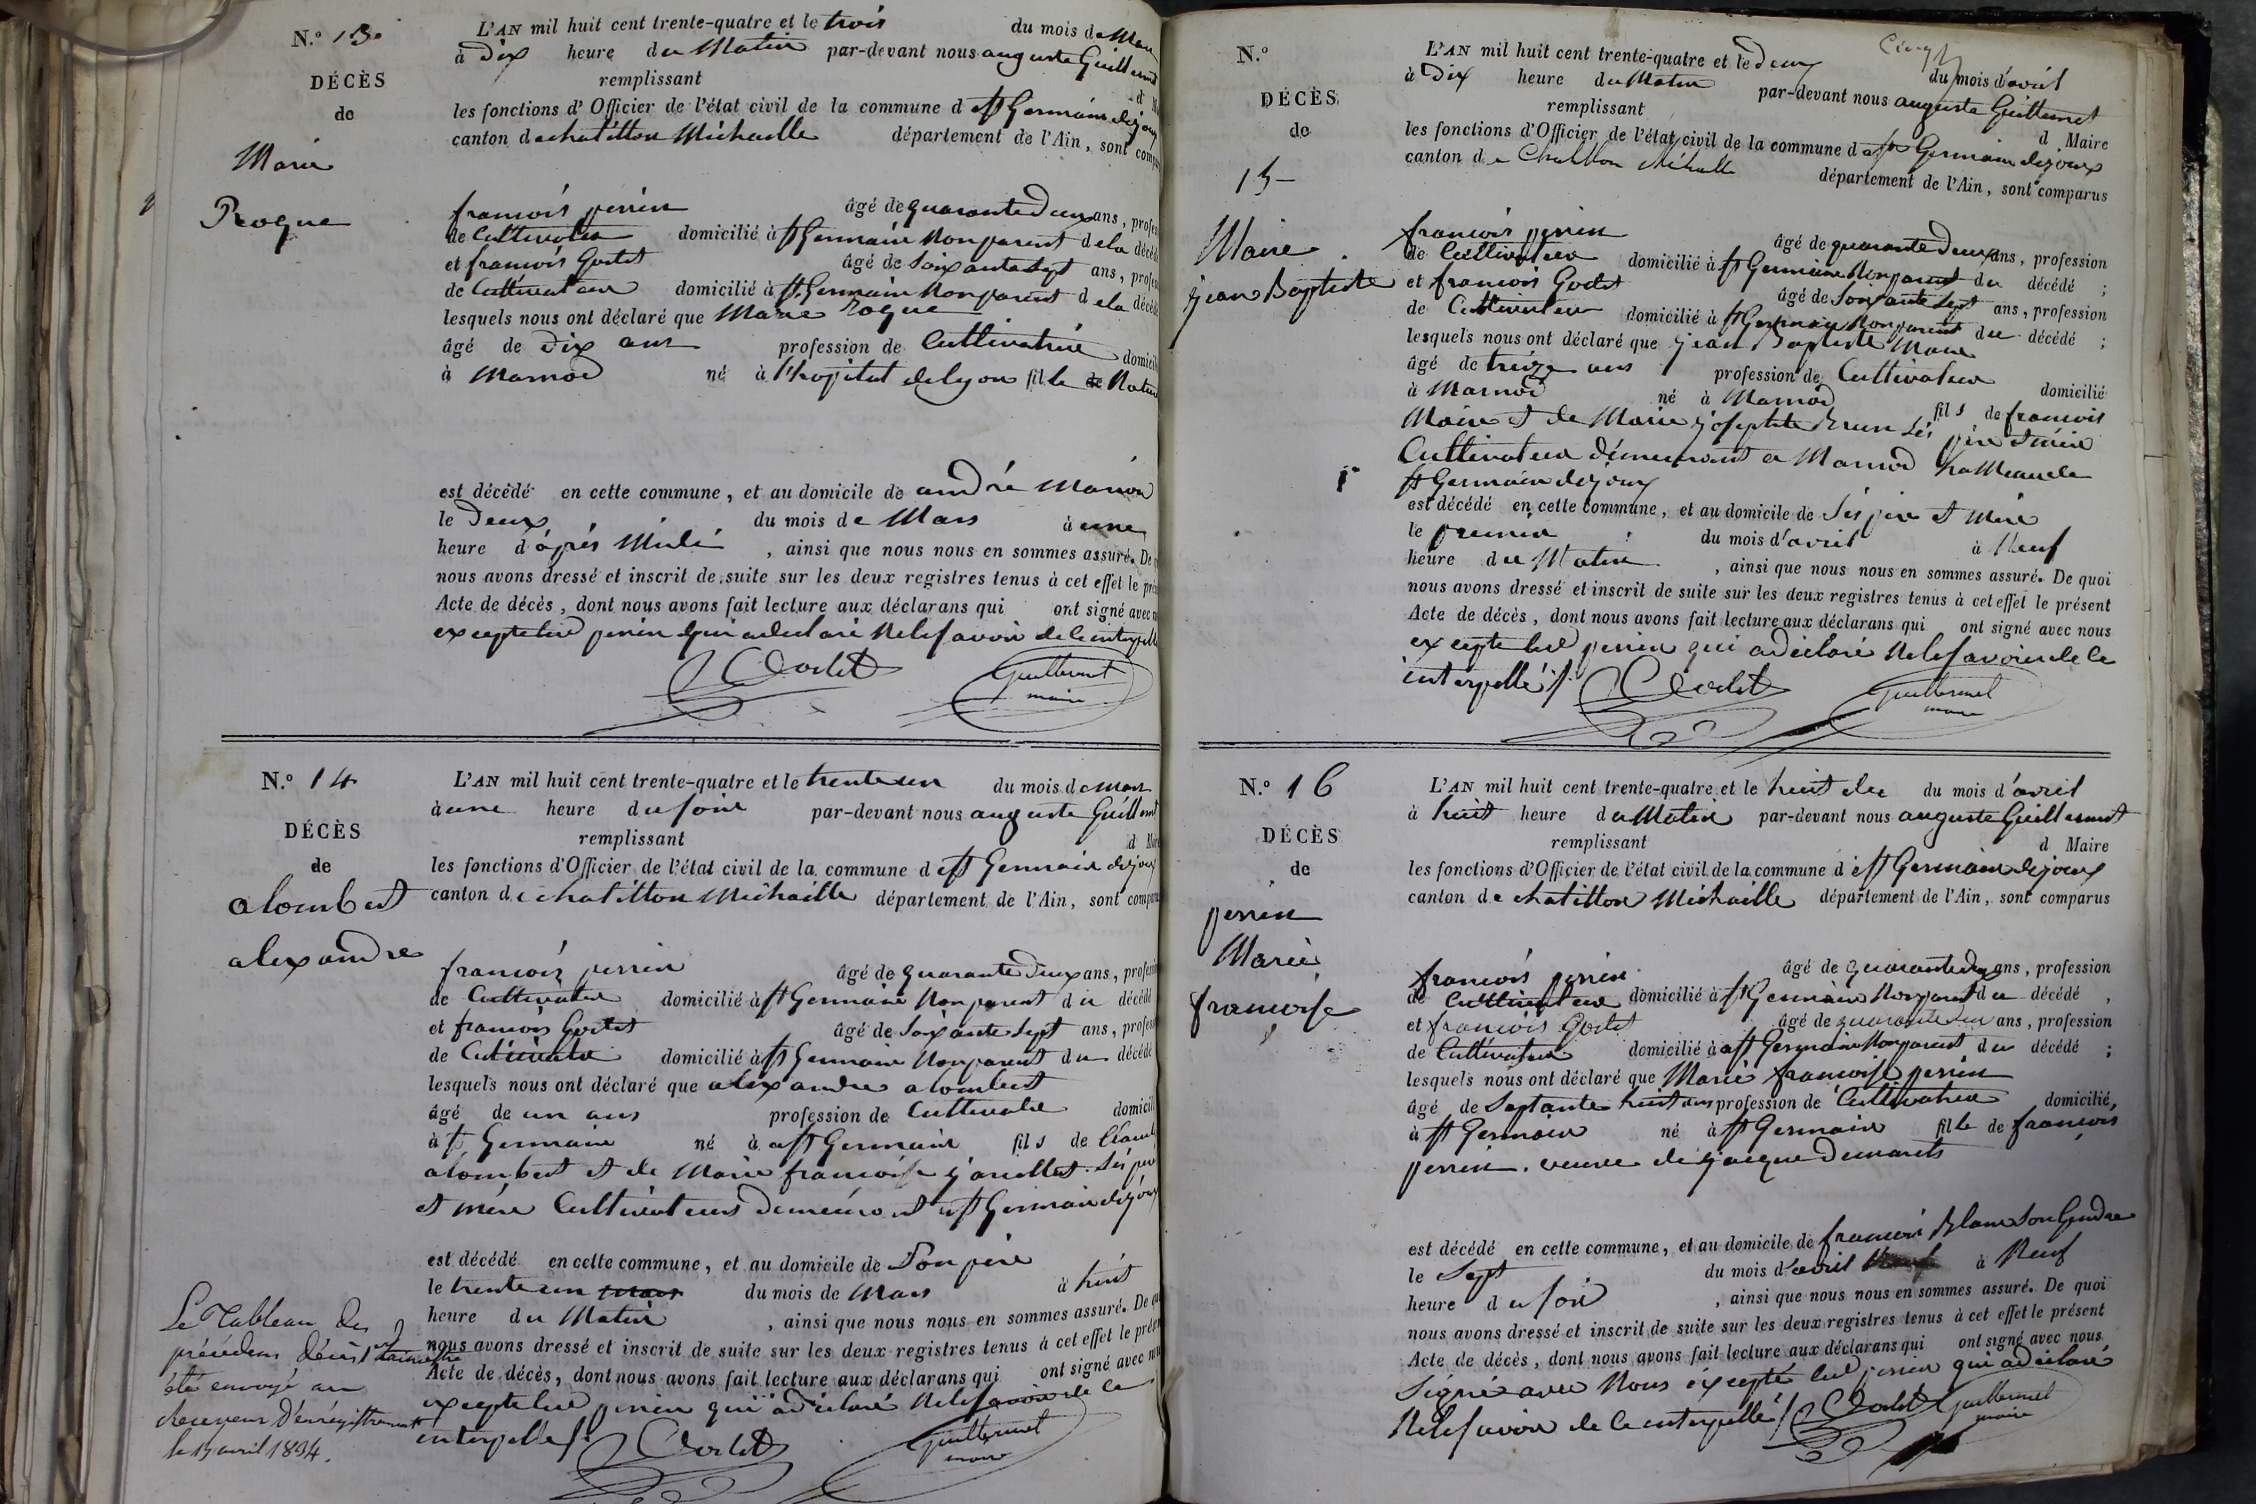 N.º 13.
DÉCÈS
de
Marie
Roque
L'AN mil huit cent trente-quatre et le trois du mois de Mars
à Dix heure du Matin par-devant nous auguste Guillermet
remplissant
les fonctions d'Officier de l'état civil de la commune d e St Germain dejoux
canton de chatillon Michaille département de l'Ain, sont
francois perrin âgé de quarante Deux ans,
de Cultivateur domicilié à St Germain Non parent de la
et francois Godet âgé de Soixante Sept ans,
de Cultivateur domicilié à St Germain Non parent de la
lesquels nous ont déclaré que Marie Roque
âgé de Dix ans profession de Cultivatrice
à Marnod né à l'hopital de lyon fille
est décédé en cette commune, et au domicile de andré
le Deux du mois de Mars à une
heure d'après Midi , ainsi que nous nous en sommes assuré. De
nous avons dressé et inscrit de suite sur les deux registres tenus à cet effet le
Acte de décès, dont nous avons fait lecture aux déclarans qui ont signé avec
excepte led perrin qui a declaré Ne le savoir de ce
Godet Guillermet
maire
N.º 14
DÉCÈS
de
alombert
alexandre
L'AN mil huit cent trente-quatre et le trente un du mois de mars
à une heure du soir par-devant nous auguste Guillermet
remplissant
les fonctions d'Officier de l'état civil de la commune d e St Germain dejoux
canton de chatillon Michaille département de l'Ain, sont
francois perrin âgé de quarante Deux ans,
de Cultivateur domicilié à St Germain Non parent du décédé
et francois Godet âgé de Soixante Sept ans,
de Cultivateur domicilié à St Germain Non parent du décédé
lesquels nous ont déclaré que alexandre alombert
âgé de un ans profession de Cultivateur
à St Germain né à St Germain fils de
alombert et de Marie francoise
et mère Cultivateurs demeurant a St Germain dejoux
est décédé en cette commune, et au domicile de Son père
le trente un du mois de Mars à huit
heure du Matin , ainsi que nous nous en sommes assuré. De
nous avons dressé et inscrit de suite sur les deux registres tenus à cet effet le
Acte de décès, dont nous avons fait lecture aux déclarans qui ont signé avec
excepte led perrin qui a declaré Ne le savoir de ce
interpellé /.
Godet Guillermet
maire
Le Tableau des
précédens décès
été envoyé au
Receveur d'enrégistrement
avril 1834.
N.º
DÉCÈS
de
15
Maire
jean Baptiste
L'AN mil huit cent trente-quatre et le deux du mois d'avril
à Dix heure du Matin par-devant nous auguste Guillermet
remplissant d Maire
les fonctions d'Officier de l'état civil de la commune d e St Germain dejoux
canton de Chatillon Michaille département de l'Ain, sont comparus
francois perrin âgé de quarante Deux ans, profession
de Cultivateur domicilié à St Germain Non parent du décédé ;
et francois Godet âgé de Soixante Sept ans, profession
de Cultivateur domicilié à St Germain Non parent du décédé ;
lesquels nous ont déclaré que jean Baptiste Maire
âgé de treize ans profession de Cultivateur domicilié
à Marnod né à Marnod fils de francois
Maire et de Marie josephte Brun Ses père et mère
Cultivateur demeurant a Marnod hameau de
St Germain dejoux
est décédé en cette commune, et au domicile de Ses pere et mere
le premier du mois d'avril à Neuf
heure du Matin , ainsi que nous nous en sommes assuré. De quoi
nous avons dressé et inscrit de suite sur les deux registres tenus à cet effet le présent
Acte de décès, dont nous avons fait lecture aux déclarans qui ont signé avec nous
excepte led perrin qui a declaré Ne le savoir de ce
interpellé /.
Godet Guillermet
maire
N.º 16
DÉCÈS
de
perrin
Marie
francoise
L'AN mil huit cent trente-quatre et le huit du mois d'avril
à huit heure du Matin par-devant nous auguste Guillermet
remplissant d Maire
les fonctions d'Officier de l'état civil de la commune d e St Germain dejoux
canton de chatillon Michaille département de l'Ain, sont comparus
francois perrin âgé de quarante deux ans, profession
de Cultivateur domicilié à St Germain Non parent du décédé ,
et francois Godet âgé de quarante ans, profession
de Cultivateur domicilié à St Germain Non parent du décédé ;
lesquels nous ont déclaré que Marie francoise perrin
âgé de Septante huit ans profession de Cultivatrice domicilié,
à St Germain né à St Germain fille de francois
perrin. veuve de jacque Demarets
est décédé en cette commune, et au domicile de francois Blanc Son Gendre
le Sept du mois d'avril à Neuf
heure du soir , ainsi que nous nous en sommes assuré. De quoi
nous avons dressé et inscrit de suite sur les deux registres tenus à cet effet le présent
Acte de décès, dont nous avons fait lecture aux déclarans qui ont signé avec nous
Signé avec Nous excepté led perrin qui a declaré
Ne le savoir de ce interpellé /.
Godet Guillermet
maire